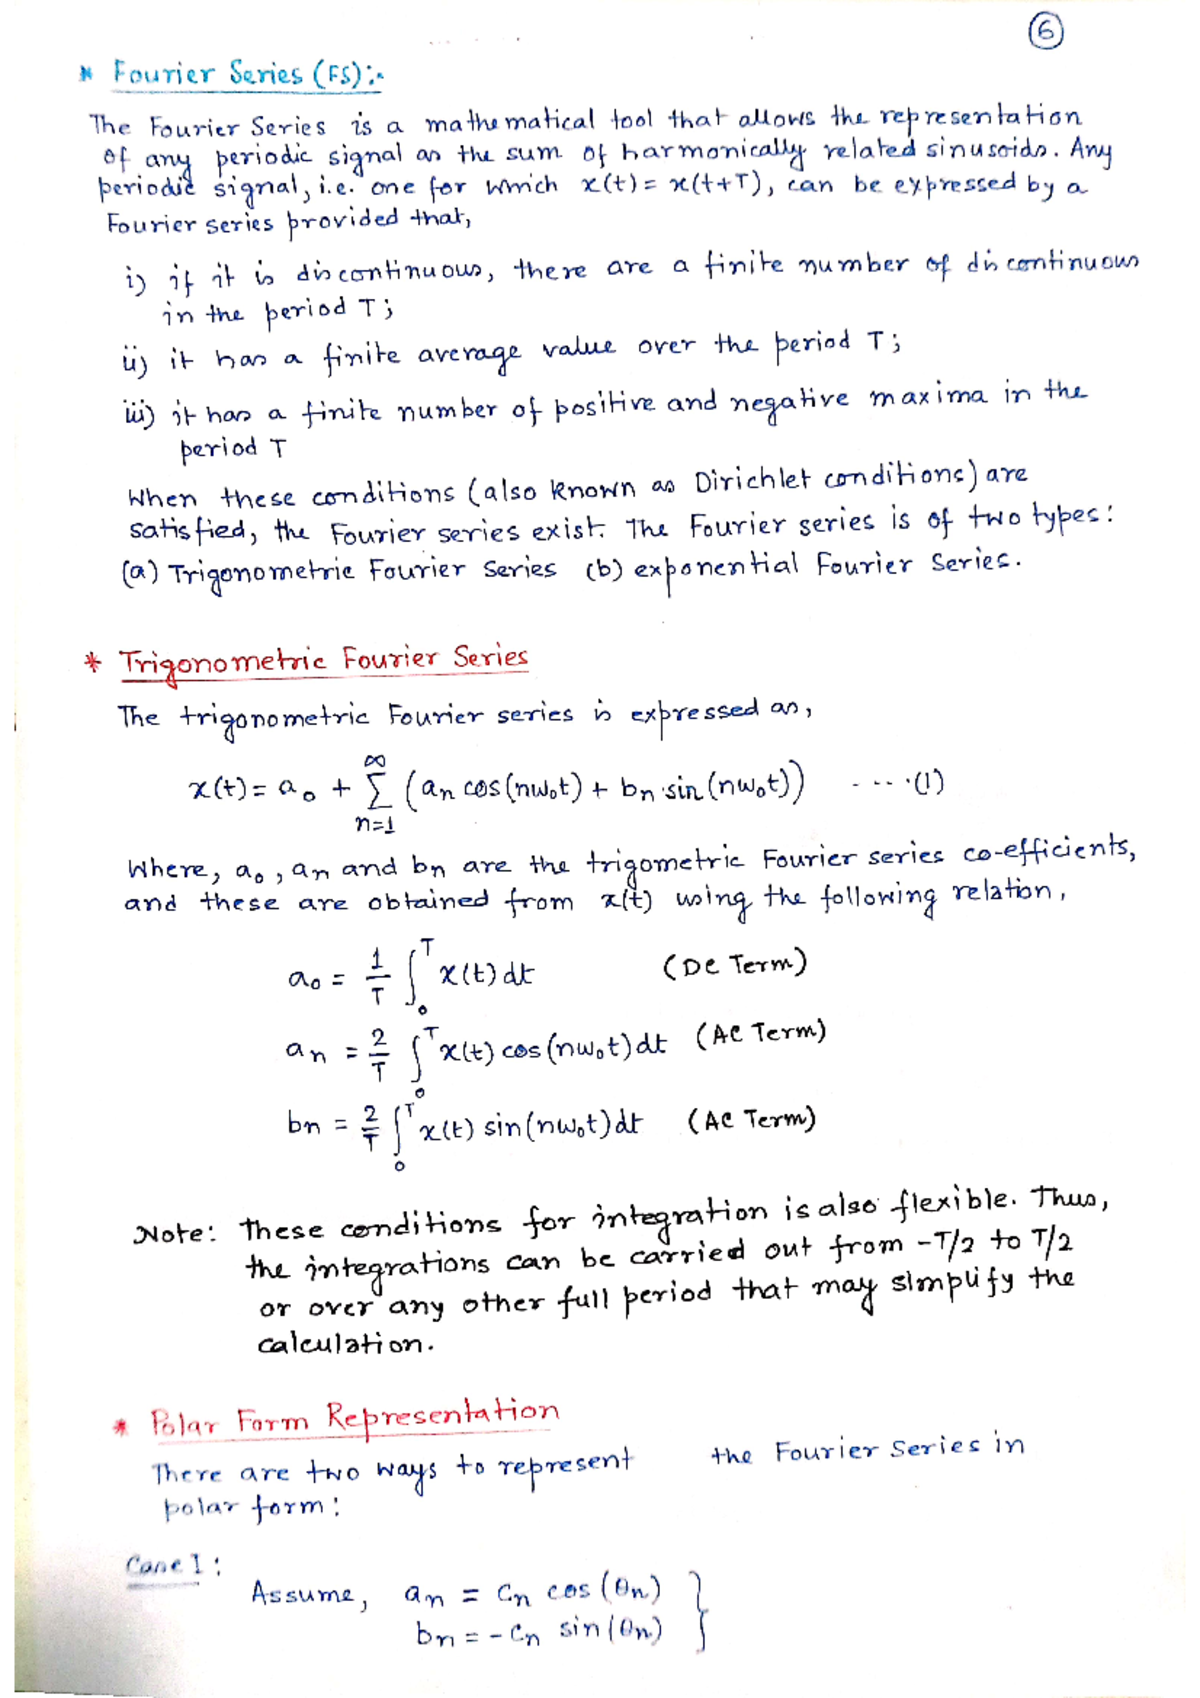 6
* Fourier Series (FS):-
The Fourier Series is a mathematical tool that allows the representation
of any periodic signal as the sum of harmonically related sinusoids. Any
periodic signal, i.e. one for which x(t) = x(t+T), can be expressed by a
Fourier series provided that,
i) if it is discontinuous, there are a finite number of discontinuous
in the period T;
ii) it has a finite average value over the period T;
iii) it has a finite number of positive and negative maxima in the
period T
When these conditions (also known as Dirichlet conditions) are
satisfied, the Fourier series exist. The Fourier series is of two types:
(a) Trigonometric Fourier Series (b) exponential Fourier Series.
* Trigonometric Fourier Series
The trigonometric Fourier series is expressed as,
x(t) = a₀ + ∑_{n=1}^{∞} (an cos(nω₀t) + bn sin(nω₀t)) ----(1)
Where, a₀, an and bn are the trigometric Fourier series co-efficients,
and these are obtained from x(t) using the following relation,
a₀ = 1/T ∫₀ᵀ x(t) dt (DC Term)
an = 2/T ∫₀ᵀ x(t) cos(nω₀t) dt (AC Term)
bn = 2/T ∫₀ᵀ x(t) sin(nω₀t) dt (AC Term)
Note: These conditions for integration is also flexible. Thus,
the integrations can be carried out from -T/2 to T/2
or over any other full period that may simplify the
calculation.
* Polar Form Representation
There are two ways to represent the Fourier Series in
polar form:
Case I:
Assume, an = Cn cos(θn) }
bn = - Cn sin(θn)